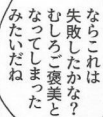 ならこれは
失敗したかな？
むしろご褒美と
なってしまった
みたいだね